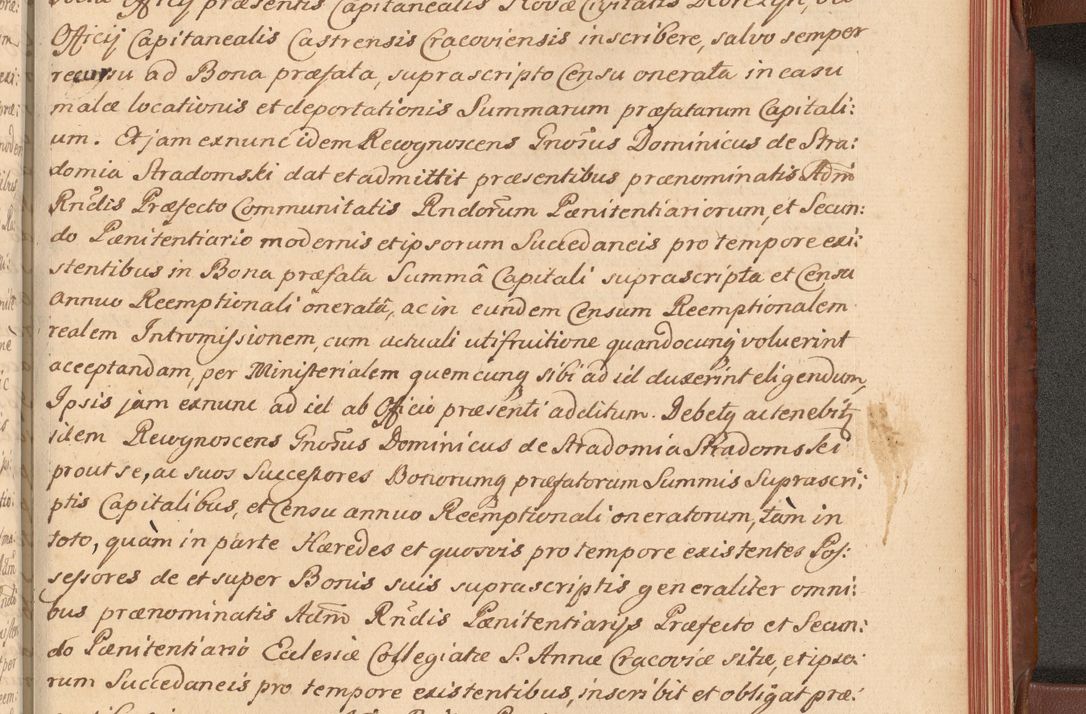 Officij præsentis Capitanealis Novæ Civitatis Korczyn,
Officij Capitanealis Castrensis Cracoviensis inscribere, salvo semper
recursu ad Bona præfata, suprascripto Censu onerata in casu
malæ locationis et deportationis Summarum præfatarum Capitali:
um. Et jam exnunc idem Recognoscens Gnosus Dominicus de Stra:
domia Stradomski dat et admittit præsentibus prænominatis Adm
Rndis Præfecto Communitatis Rndorum Pænitentiariorum, et Secun:
do Pænitentiario modernis et ipsorum Succedaneis pro tempore exi:
stentibus in Bona præfata Summâ Capitali suprascripta et Censu
annuo Reemptionali onerata, ac in eundem Censum Reemptionalem
realem Intromissionem, cum actuali utifruitione quandocunq voluerint
acceptandam, per Ministerialem quemcunq sibi ad id duxerint eligendum,
Ipsis jam exnunc ad id ab Officio præsenti additum. Debetq ac tenebitq
idem Recognoscens Gnosus Dominicus de Stradomia Stradomski
prout se, ac suos Successores Bonorumq præfatorum Summis Suprascri:
ptis Capitalibus, et Censu annuo Reemptionali oneratorum, tàm in
toto, quàm in parte Hæredes et quosvis pro tempore existentes Pos:
sessores de et super Bonis suis suprascriptis generaliter omni:
bus prænominatis Adm Rndis Pænitentiarijs Præfecto et Secun:
do Pænitentiario Eclesiæ Collegiatæ S. Annæ Cracoviæ sitæ, et ipso:
rum Succedaneis pro tempore existentibus, inscribit et obligat præ: